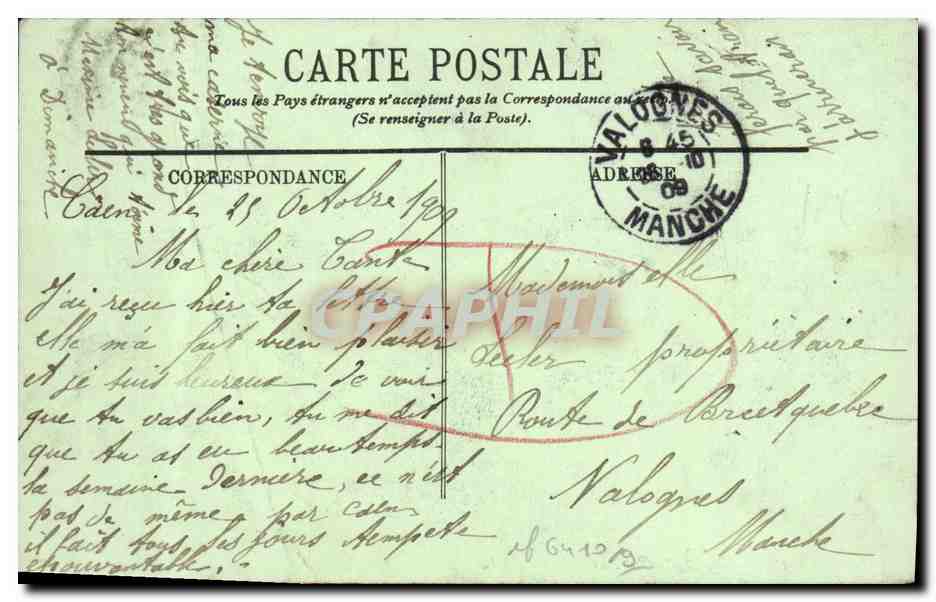 CARTE POSTALE
Tous les Pays étrangers n'acceptent pas la Correspondance au recto
(Se renseigner à la Poste).
CORRESPONDANCE
ADRESSE
VALOGNES
8 45
10
09
MANCHE
Caen le 25 Octobre 190
Ma chère Tante
J'ai reçu hier ta lettre
elle m'a fait bien plaisir
et je suis heureux de voir
que tu vas bien, tu me dit
que tu as eu beau temps
la semaine dernière, ce n'est
pas de même par Caen
il fait tous les jours tempête
épouvantable.
Je t'envoye
ma caserne
tu vois que
c'est très grand
à Dimanche
Mademoiselle
propriétaire
Route de Bricquebec
Valognes
Manche
CPAPHIL